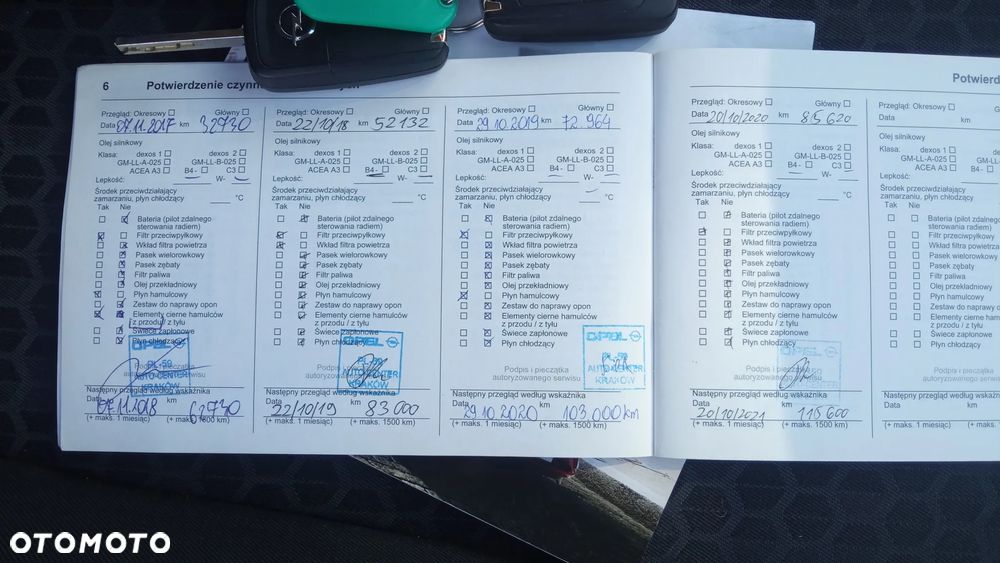 6 Potwierdzenie czynn
Przegląd: Okresowy Główny
Data 07.11.2017 km 32730
Olej silnikowy
Klasa: dexos 1 dexos 2
GM-LL-A-025 GM-LL-B-025
ACEA A3 B4 - C3
Lepkość: W-
Środek przeciwdziałający
zamarzaniu, płyn chłodzący °C
Tak Nie
Bateria (pilot zdalnego
sterowania radiem)
Filtr przeciwpyłkowy
Wkład filtra powietrza
Pasek wielorowkowy
Pasek zębaty
Filtr paliwa
Olej przekładniowy
Płyn hamulcowy
Zestaw do naprawy opon
Elementy cierne hamulców
z przodu / z tyłu
Świece zapłonowe
Płyn chłodzący
OPEL
PL-59
AUTO-CENTER
KRAKÓW
Podpis i pieczątka
autoryzowanego serwisu
Następny przegląd według wskaźnika
Data km
07.11.2018 62730
(+ maks. 1 miesiąc) (+ maks. 1500 km)
Przegląd: Okresowy Główny
Data 22/10/18 km 52132
Olej silnikowy
Klasa: dexos 1 dexos 2
GM-LL-A-025 GM-LL-B-025
ACEA A3 B4 - C3
Lepkość: W-
Środek przeciwdziałający
zamarzaniu, płyn chłodzący °C
Tak Nie
Bateria (pilot zdalnego
sterowania radiem)
Filtr przeciwpyłkowy
Wkład filtra powietrza
Pasek wielorowkowy
Pasek zębaty
Filtr paliwa
Olej przekładniowy
Płyn hamulcowy
Zestaw do naprawy opon
Elementy cierne hamulców
z przodu / z tyłu
Świece zapłonowe
Płyn chłodzący
OPEL
AUTO-CENTER
KRAKÓW
Podpis i pieczątka
autoryzowanego serwisu
Następny przegląd według wskaźnika
Data km
22/10/19 83 000
(+ maks. 1 miesiąc) (+ maks. 1500 km)
Przegląd: Okresowy Główny
Data 29.10.2019 km 72.964
Olej silnikowy
Klasa: dexos 1 dexos 2
GM-LL-A-025 GM-LL-B-025
ACEA A3 B4 - C3
Lepkość: W-
Środek przeciwdziałający
zamarzaniu, płyn chłodzący °C
Tak Nie
Bateria (pilot zdalnego
sterowania radiem)
Filtr przeciwpyłkowy
Wkład filtra powietrza
Pasek wielorowkowy
Pasek zębaty
Filtr paliwa
Olej przekładniowy
Płyn hamulcowy
Zestaw do naprawy opon
Elementy cierne hamulców
z przodu / z tyłu
Świece zapłonowe
Płyn chłodzący
OPEL
PL-59
AUTO-CENTER
KRAKÓW
Podpis i pieczątka
autoryzowanego serwisu
Następny przegląd według wskaźnika
Data km
29.10.2020 103.000 km
(+ maks. 1 miesiąc) (+ maks. 1500 km)
Potwierd
Przegląd: Okresowy Główny
Data 20/10/2020 km 85 620
Olej silnikowy
Klasa: dexos 1 dexos 2
GM-LL-A-025 GM-LL-B-025
ACEA A3 B4 - C3
Lepkość: W-
Środek przeciwdziałający
zamarzaniu, płyn chłodzący °C
Tak Nie
Bateria (pilot zdalnego
sterowania radiem)
Filtr przeciwpyłkowy
Wkład filtra powietrza
Pasek wielorowkowy
Pasek zębaty
Filtr paliwa
Olej przekładniowy
Płyn hamulcowy
Zestaw do naprawy opon
Elementy cierne hamulców
z przodu / z tyłu
Świece zapłonowe
Płyn chłodzący
OPEL
Podpis i pieczątka
autoryzowanego serwisu
Następny przegląd według wskaźnika
Data km
20/10/2021 115 600
(+ maks. 1 miesiąc) (+ maks. 1500 km)
Przegląd: Okresowy
Data km
Olej silnikowy
Klasa: dexos 1
GM-LL-A-025
ACEA A3
Lepkość:
Środek przeciwdziałający
zamarzaniu, płyn chłodzący
Tak Nie
Bateria (pilot
sterowania
Filtr przeciw
Wkład filtra
Pasek wielo
Pasek zęba
Filtr paliwa
Olej przekł
Płyn hamul
Zestaw do
Elementy
z przodu /
Świece z
Płyn chł
Podpis i p
autoryzowane
Następny przegląd wedł
Data
(+ maks. 1 miesiąc)
OTOMOTO